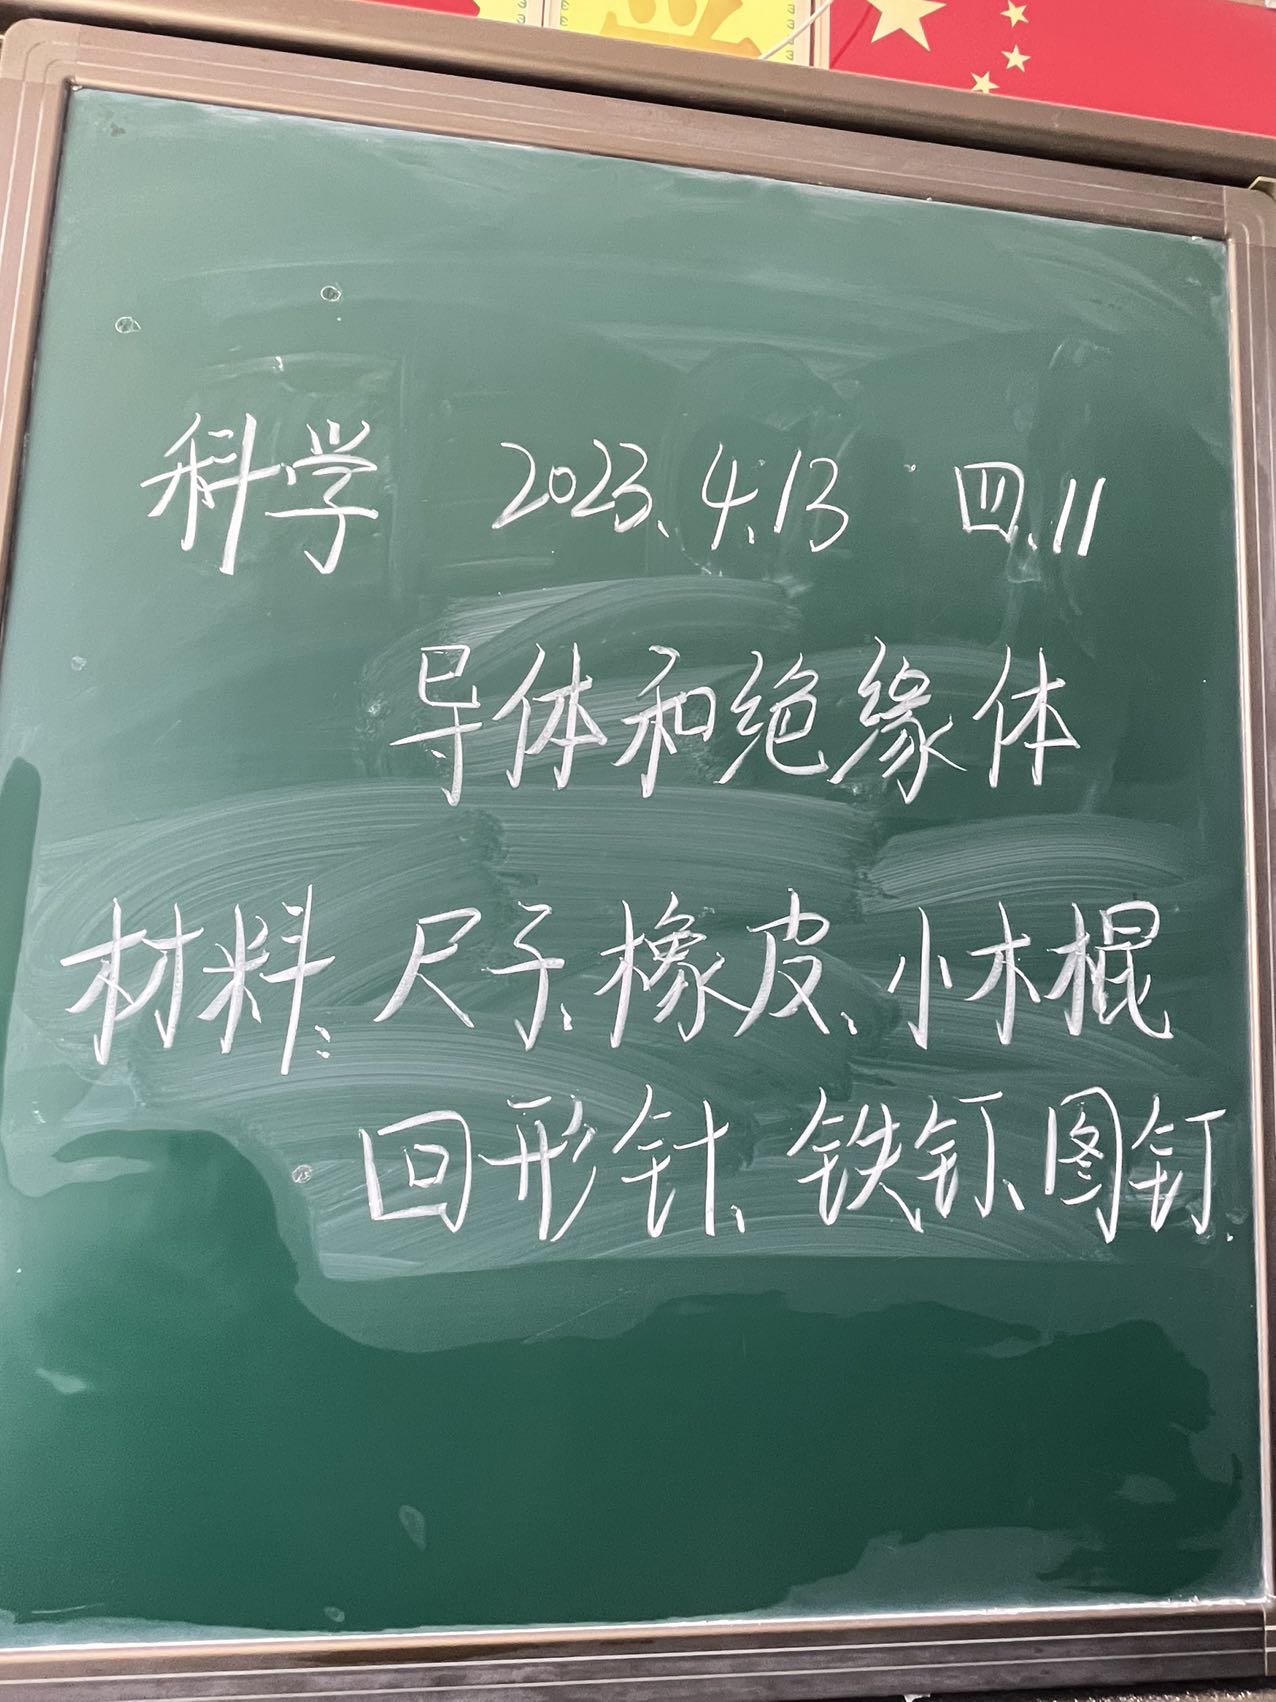 科学 2023.4.13 四.11
导体和绝缘体
材料:尺子、橡皮、小木棍
回形针、铁钉、图钉.